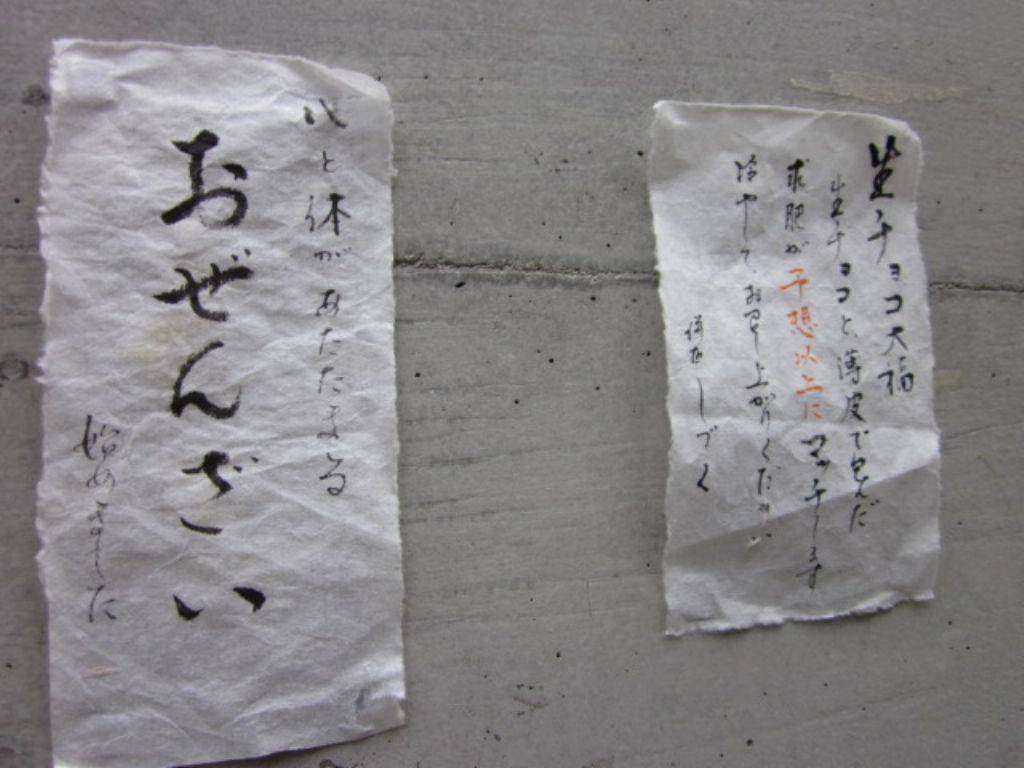 心と体があたたまる
おぜんざい
始めました
生チョコ大福
生チョコと、薄皮で包んだ
求肥が予想以上に マッチします
冷やして、お召し上がりください
しづく